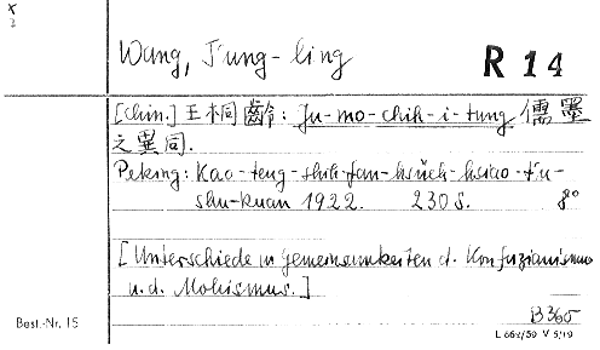 x
3
Wang, T'ung-ling
R 14
[Chin.] 王桐齡: Ju-mo-chih-i-tung 儒墨
之異同.
Peking: Kao-teng-shih-fan-hsüeh-hsiao-t'u-
shu-kuan 1922. 230 S. 8°
[Unterschiede u. Gemeinsamkeiten d. Konfuzianismus
u. d. Mohismus.]
B 365
Best.-Nr. 15
L 662/59 V 5/19